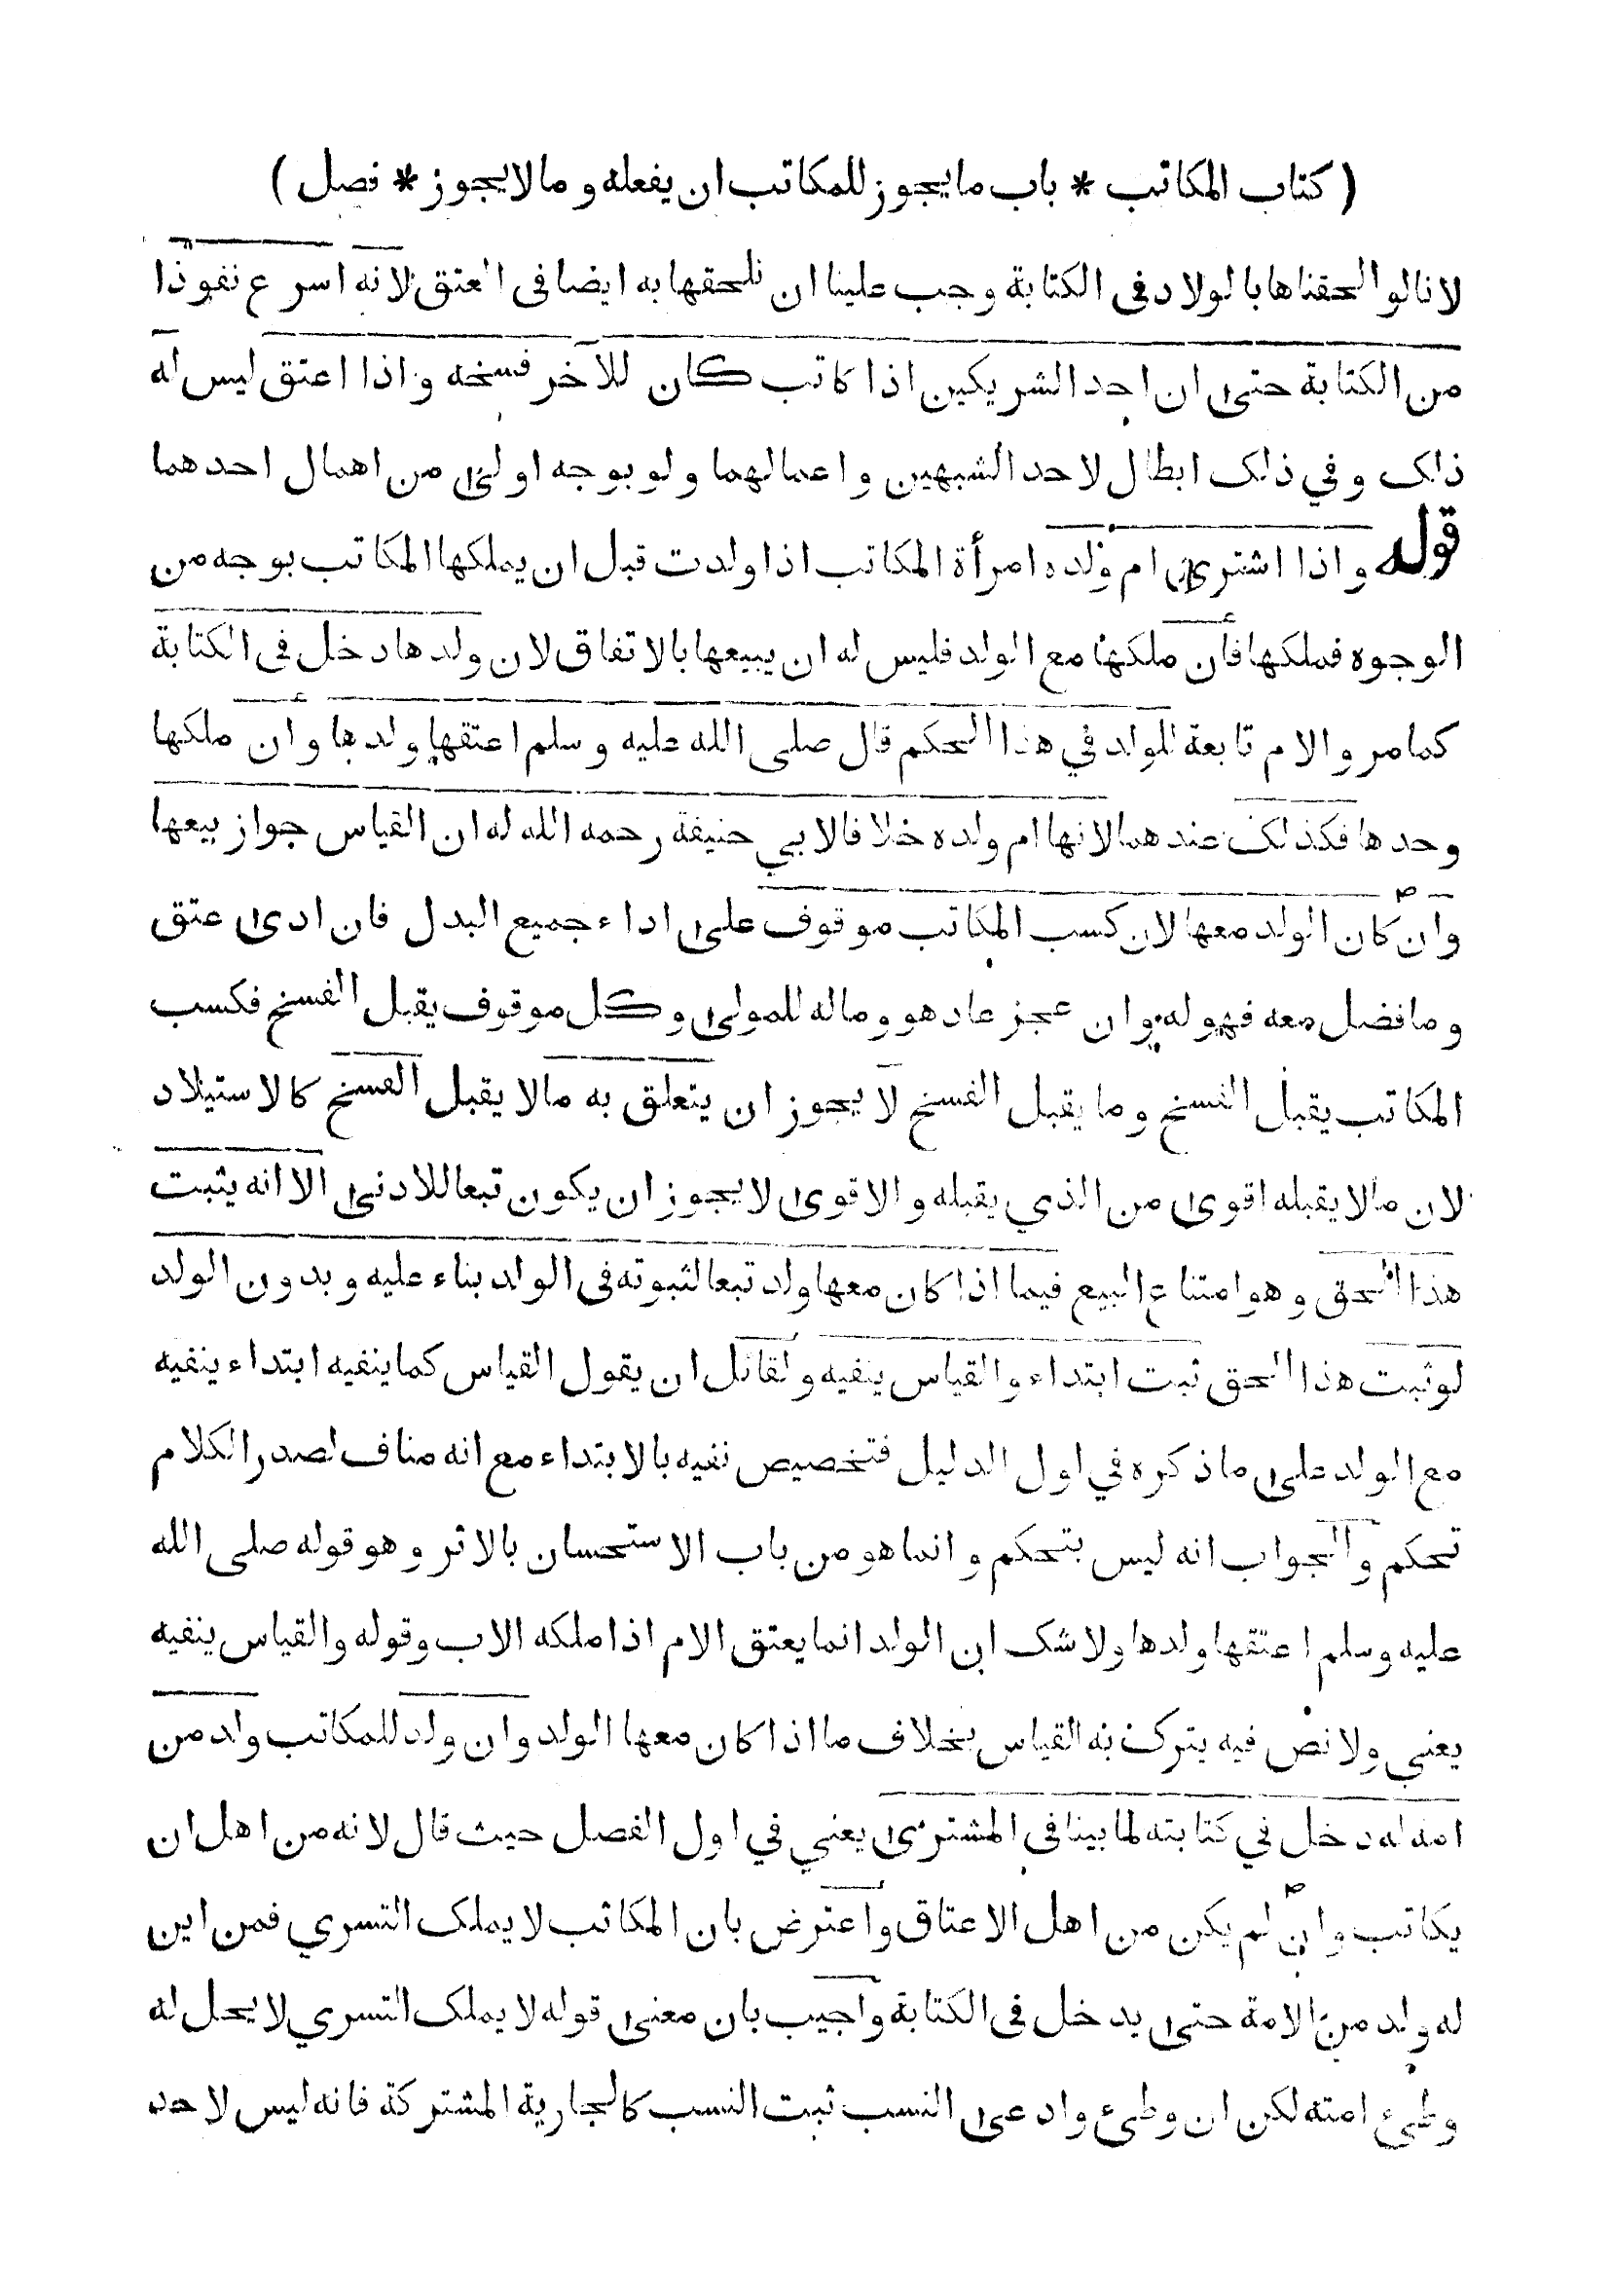 ( كتاب المكاتب * باب ما يجوز للمكاتب ان يفعله و مالا يجوز * فصل )
لانا لو الحقناها بالولاد فى الكتابة وجب علينا ان نلحقها به ايضا فى العتق لانه اسرع نفوذا
من الكتابة حتى ان احد الشريكين اذا كاتب كان للآخر فسخه واذا اعتق ليس له
ذلك وفي ذلك ابطال لاحد الشبهين واعمالهما ولو بوجه اولى من اهمال احدهما
قوله واذا اشترى ام ولده امرأة المكاتب اذا ولدت قبل ان يملكها المكاتب بوجه من
الوجوه فملكها فأن ملكها مع الولد فليس له ان يبيعها بالاتفاق لان ولدها دخل فى الكتابة
كما مر والام تابعة للولد في هذا الحكم قال صلى الله عليه وسلم اعتقها ولدها وأن ملكها
وحدها فكذلك عندهما لانها ام ولده خلافا لابي حنيفة رحمه الله له ان القياس جواز بيعها
وان كان الولد معها لان كسب المكاتب موقوف على اداء جميع البدل فان ادى عتق
وما فضل معه فهو له وان عجز عاد هو وماله للمولى وكل موقوف يقبل الفسخ فكسب
المكاتب يقبل الفسخ وما يقبل الفسخ لا يجوز ان يتعلق به مالا يقبل الفسخ كالاستيلاد
لان مالا يقبله اقوى من الذي يقبله والاقوى لا يجوز ان يكون تبعا للادنى الا انه يثبت
هذا الحق وهو امتناع البيع فيما اذا كان معها ولد تبعا لثبوته فى الولد بناء عليه وبدون الولد
لو ثبت هذا الحق ثبت ابتداء والقياس ينفيه ولقائل ان يقول القياس كما ينفيه ابتداء ينفيه
مع الولد على ما ذكره في اول الدليل فتخصيص نفيه بالابتداء مع انه مناف لصدر الكلام
تحكم والجواب انه ليس بتحكم وانما هو من باب الاستحسان بالاثر وهو قوله صلى الله
عليه وسلم اعتقها ولدها ولا شك ان الولد انما يعتق الام اذا ملكه الاب وقوله والقياس ينفيه
يعني ولا نص فيه يترك به القياس بخلاف ما اذا كان معها الولد وان ولد للمكاتب ولد من
امة له دخل في كتابته لما بينا فى المشترى يعني في اول الفصل حيث قال لانه من اهل ان
يكاتب وان لم يكن من اهل الاعتاق واعترض بان المكاتب لا يملك التسري فمن اين
له ولد من الامة حتى يدخل فى الكتابة واجيب بان معنى قوله لا يملك التسري لا يحل له
وطئ امته لكن ان وطئ وادعى النسب ثبت النسب كالجارية المشتركة فانه ليس لاحد